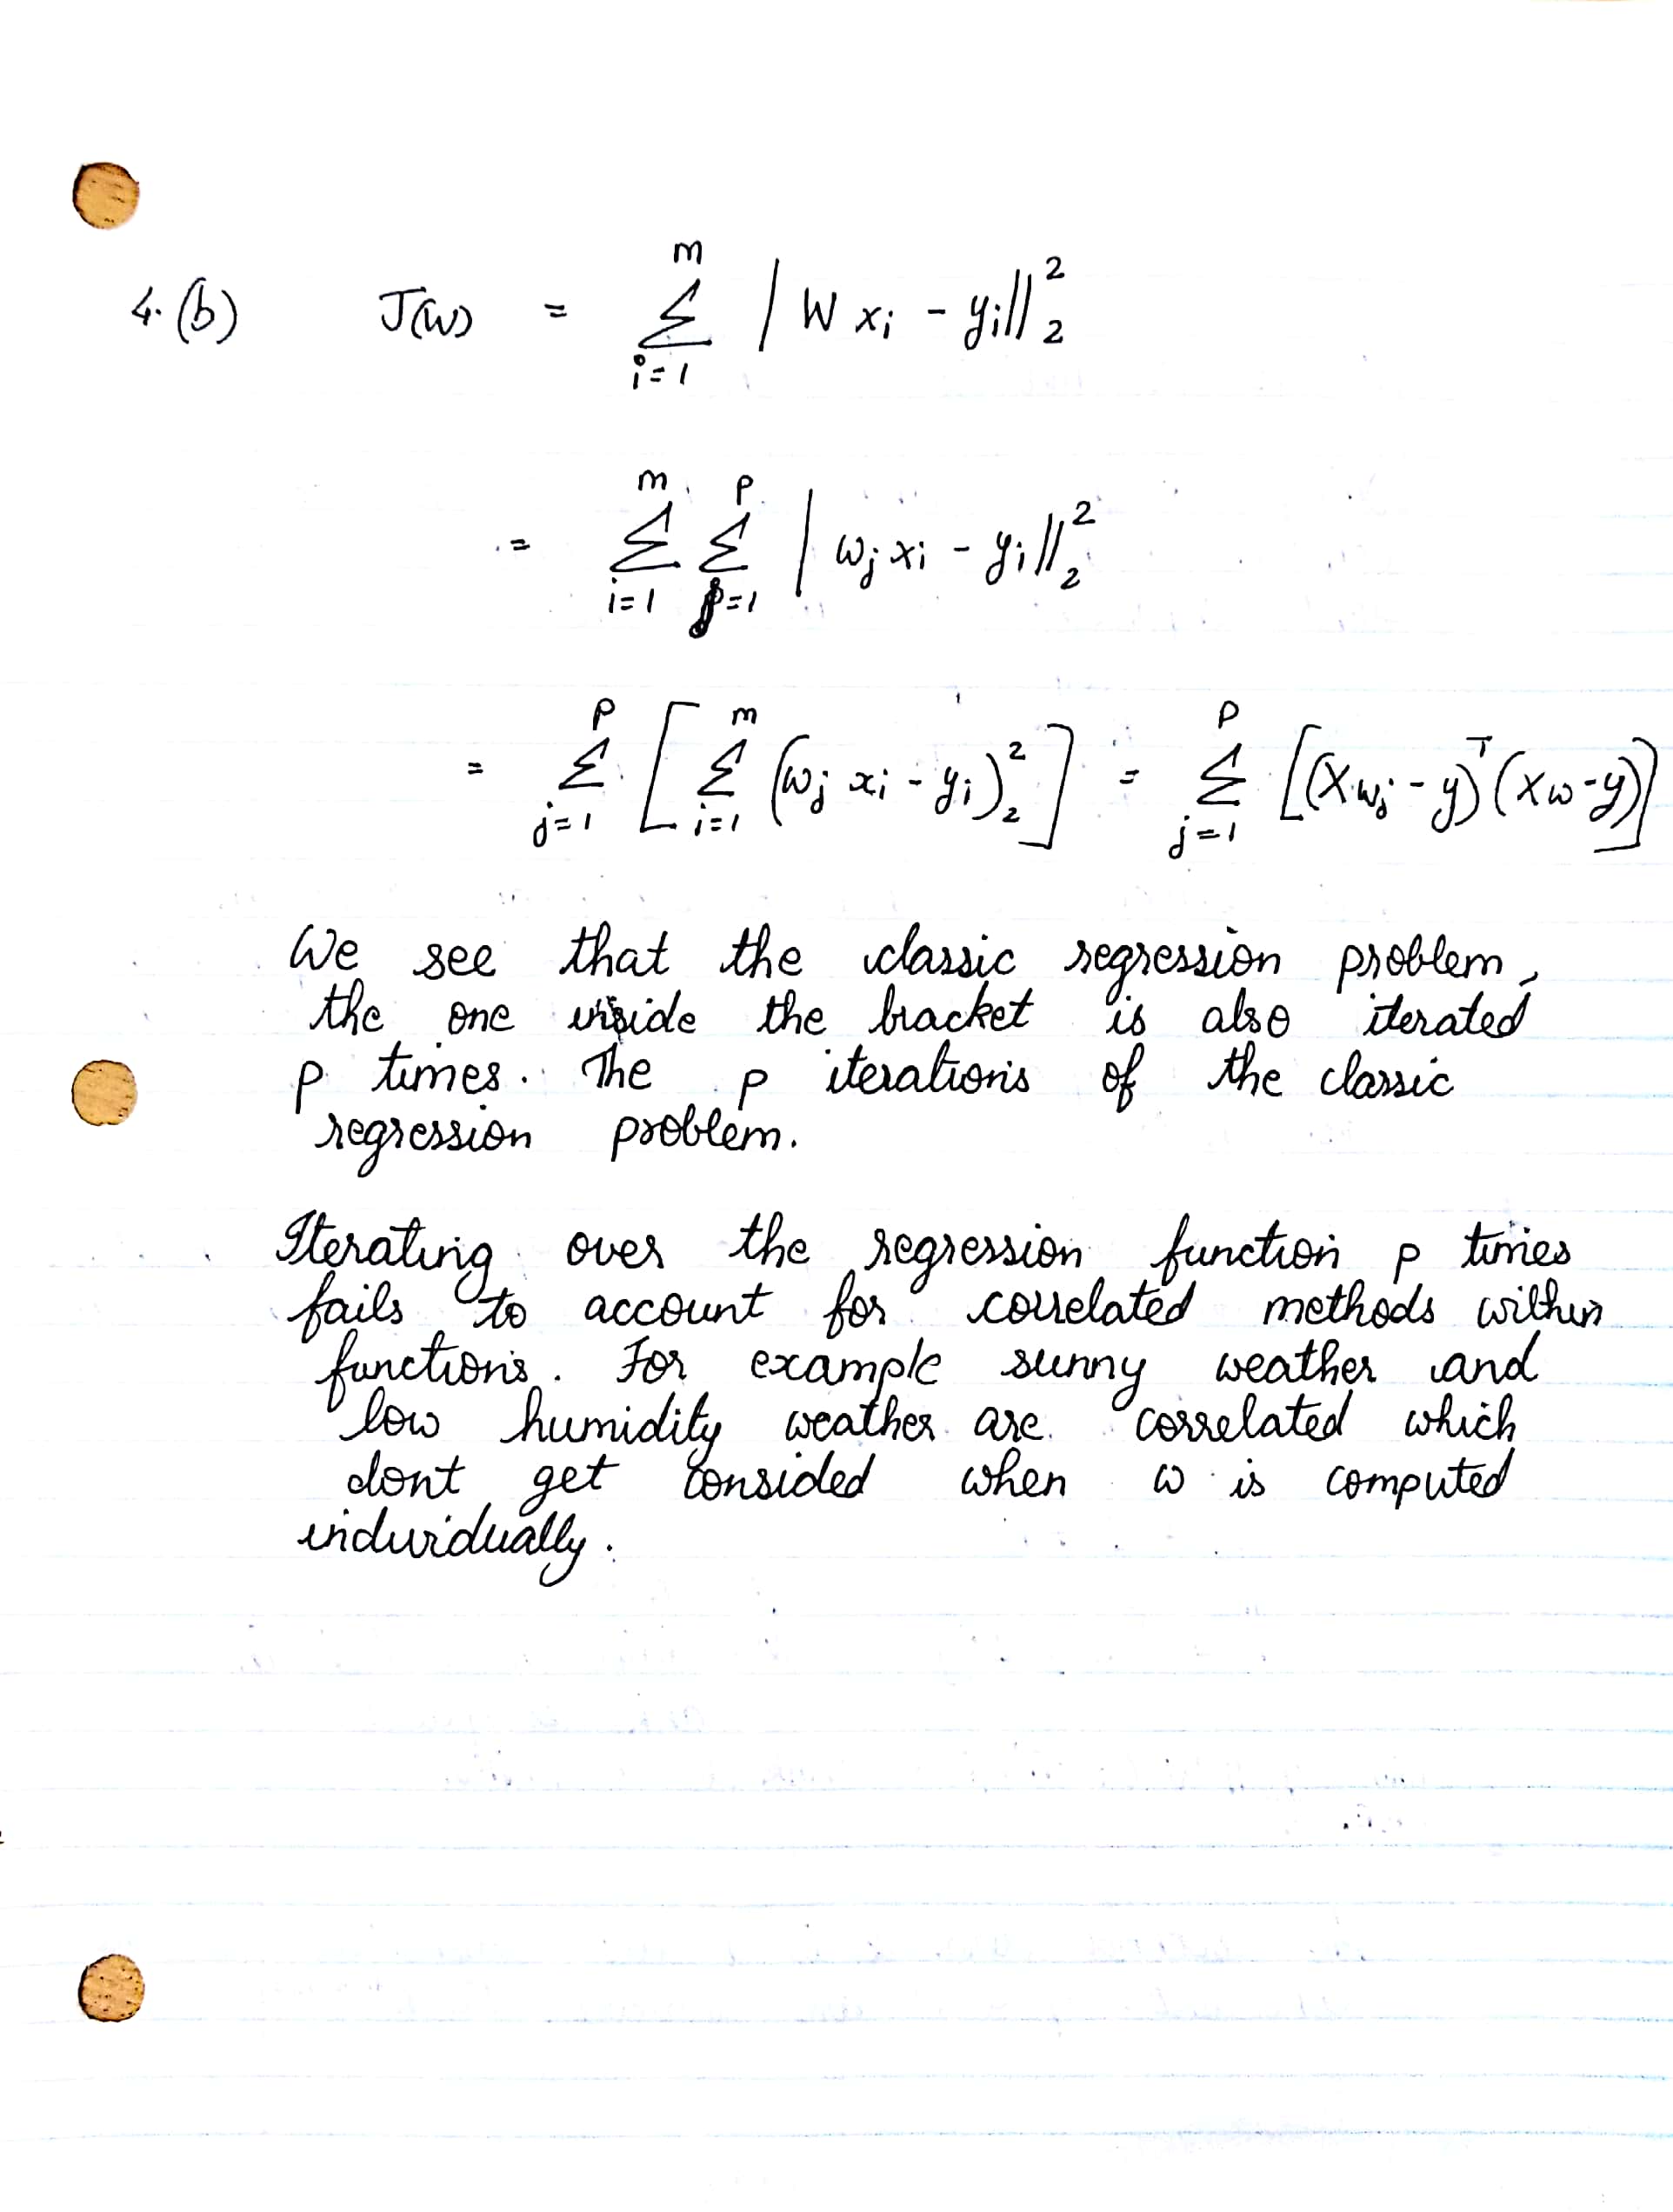 4. (b) J(w) = m Σ i=1 | W xi - yi||₂²
= m Σ i=1 p Σ j=1 | wj xi - yi||₂²
= p Σ j=1 [ m Σ i=1 (wj xi - yi)₂² ] = p Σ j=1 [(Xwj - y)ᵀ(Xw-y)]
We see that the classic regression problem,
the one inside the bracket is also iterated
p times. The p iterations of the classic
regression problem.
Iterating over the regression function p times
fails to account for correlated methods within
functions. For example sunny weather and
low humidity weather are correlated which
dont get consided when w is computed
individually.